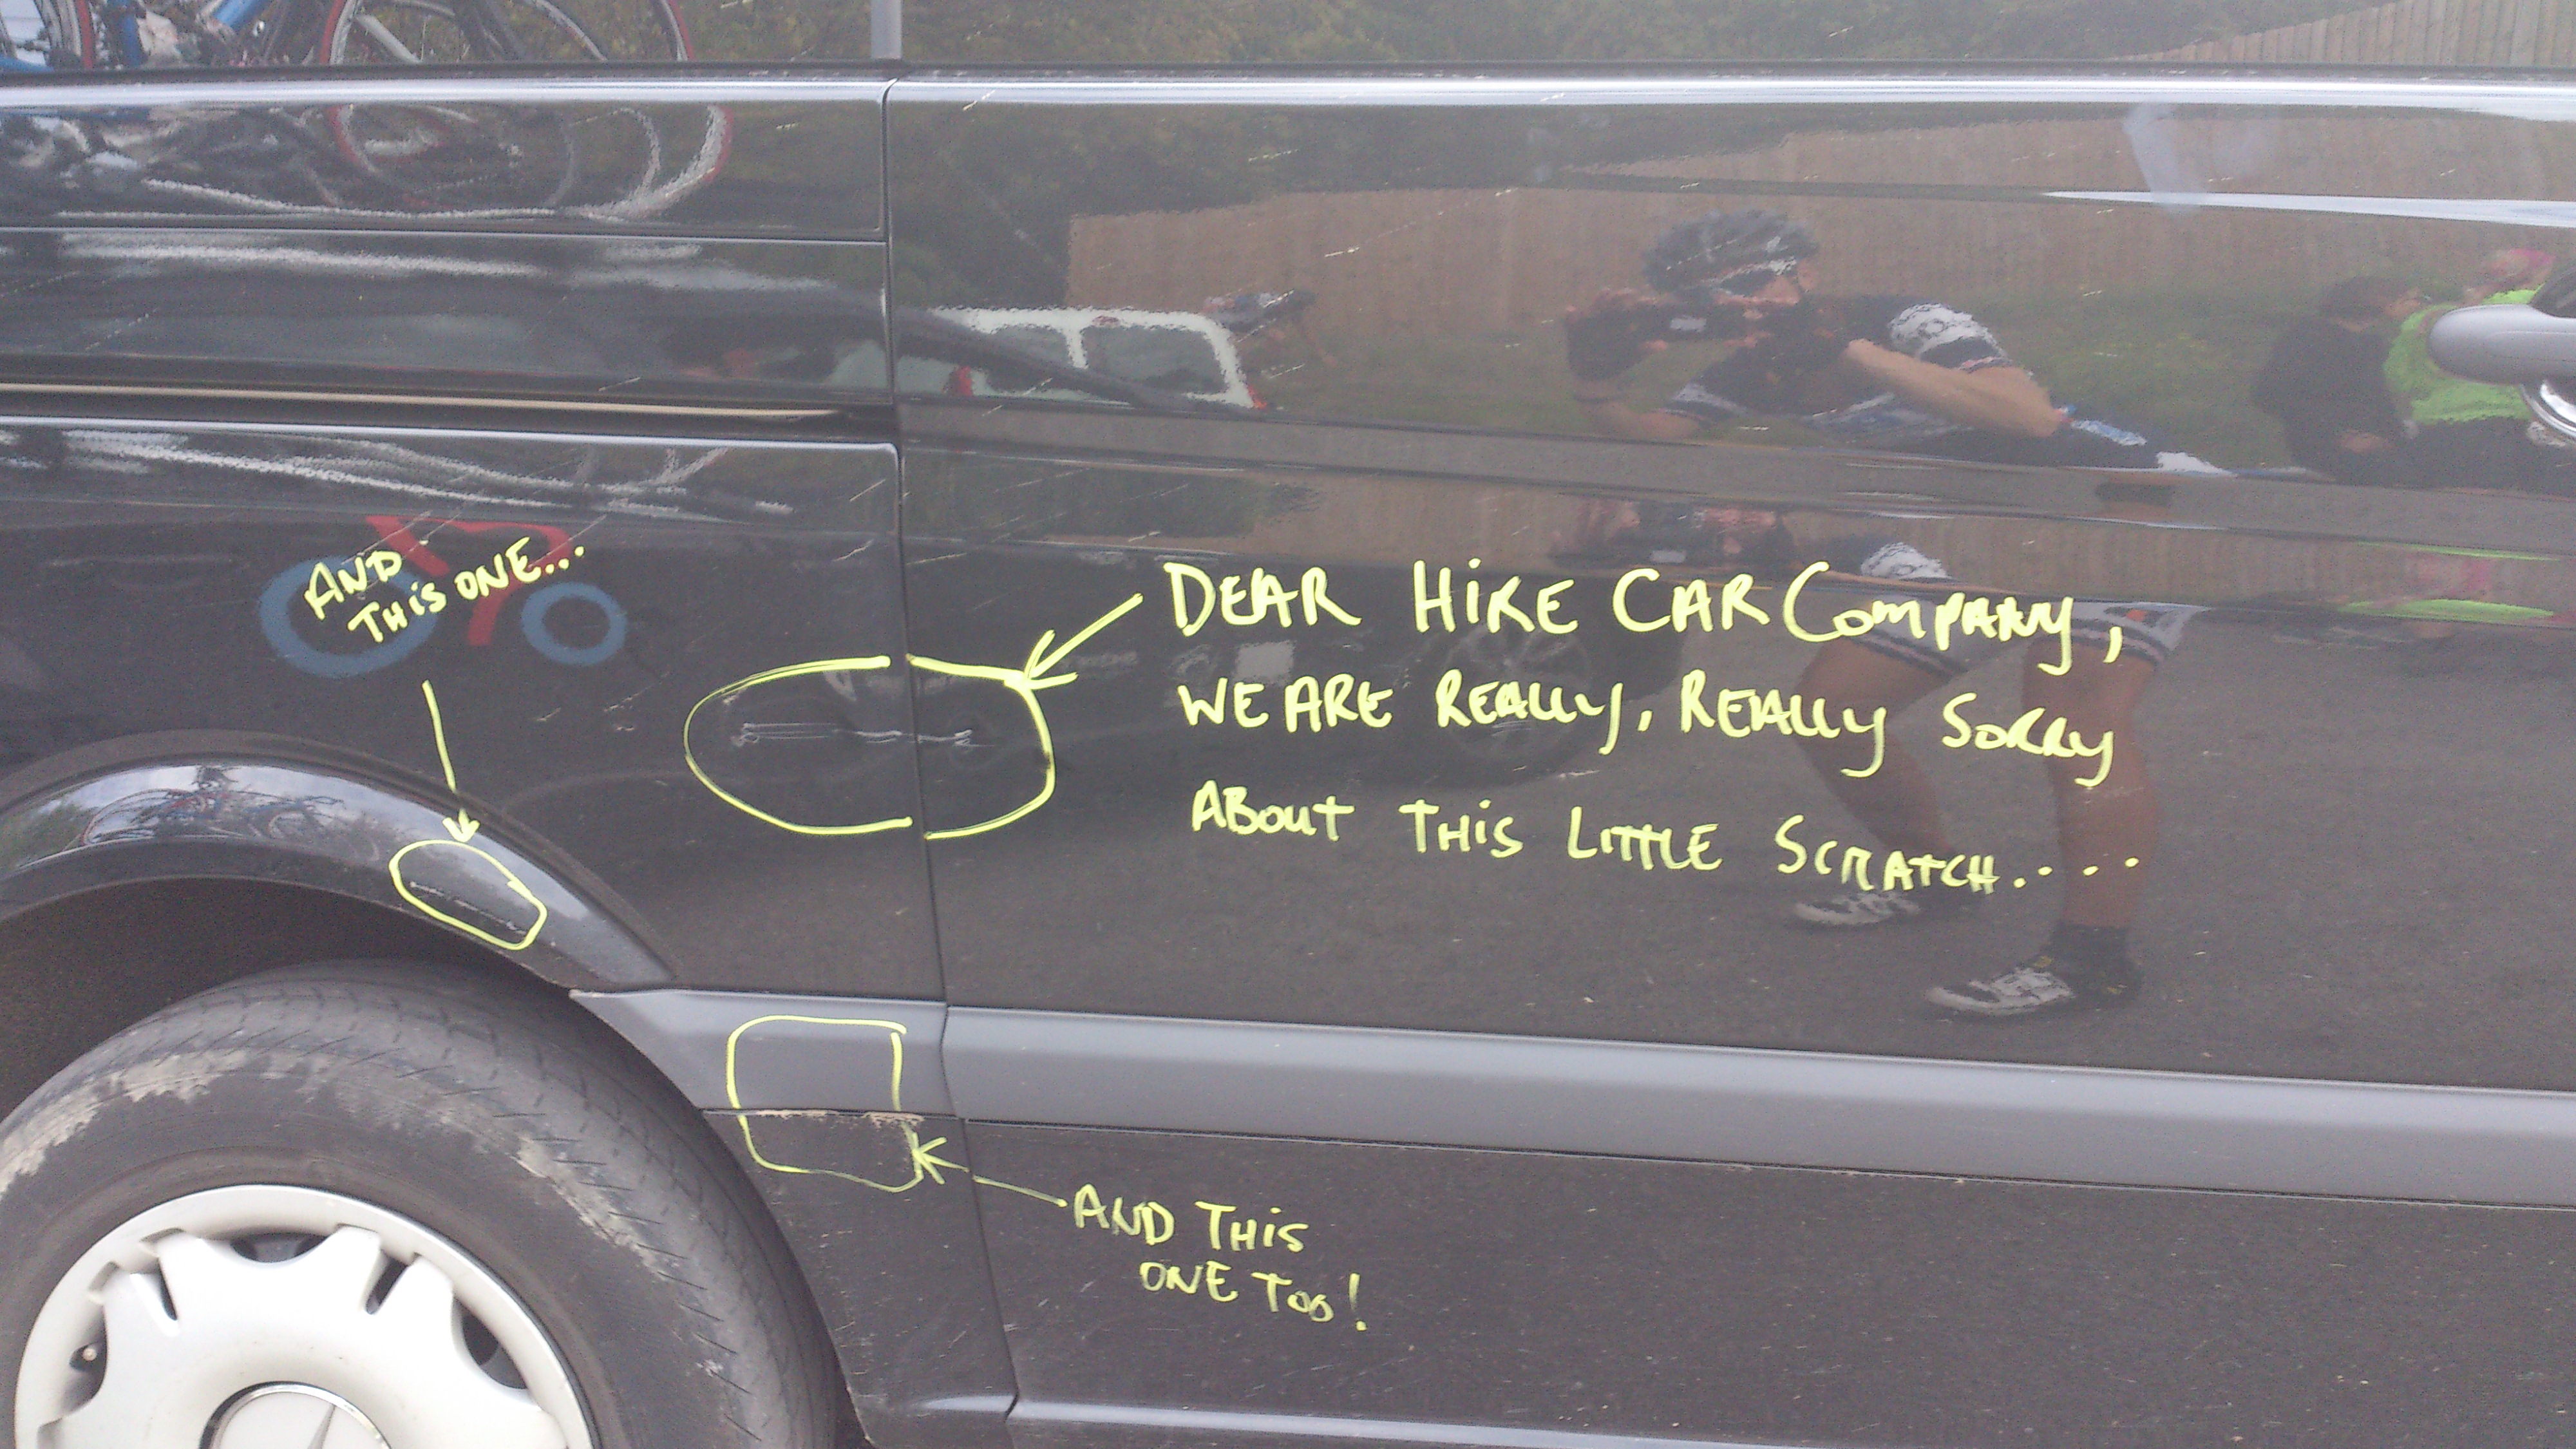 DEAR HIRE CAR COMPANY,
WE ARE REALLY, REALLY SORRY
ABOUT THIS LITTLE SCRATCH.....
AND
THIS ONE...
AND THIS
ONE TOO!